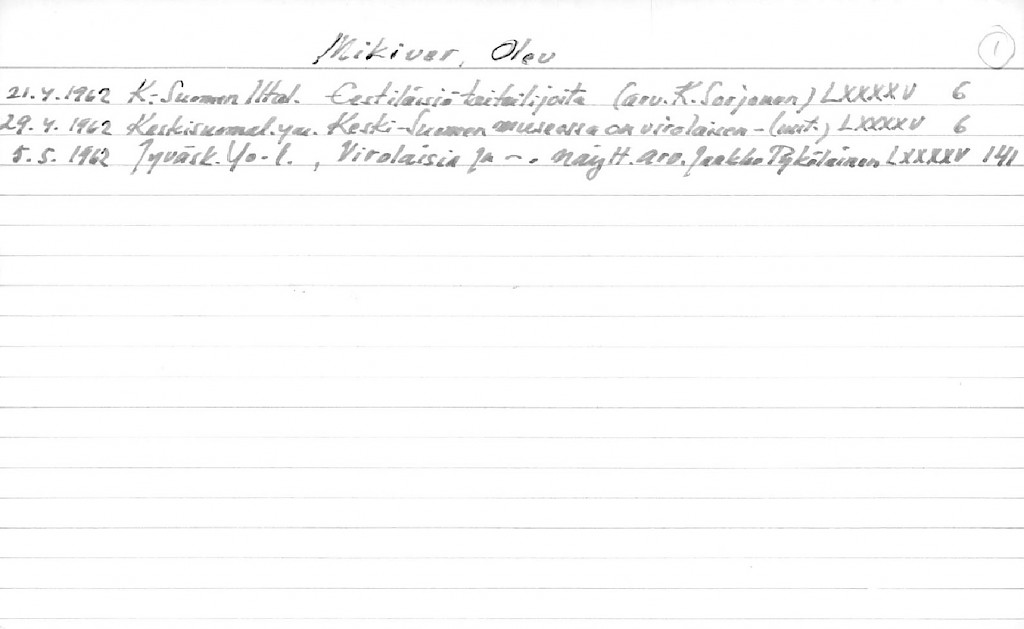 Mikiver, Olev
1
21.4.1962 K-Suomen Iltal. Eestiläisiä taiteilijoita (arv. K. Sorjonen) LXXXXV 6
29.4.1962 Keskisuomal. Keski-Suomen museossa on virolaisen - (uut.) LXXXXV 6
5.5.1962 Jyväsk. Yo-l., Virolaisia ja --. näytt. arv. Jaakko Pykäläinen LXXXXV 141